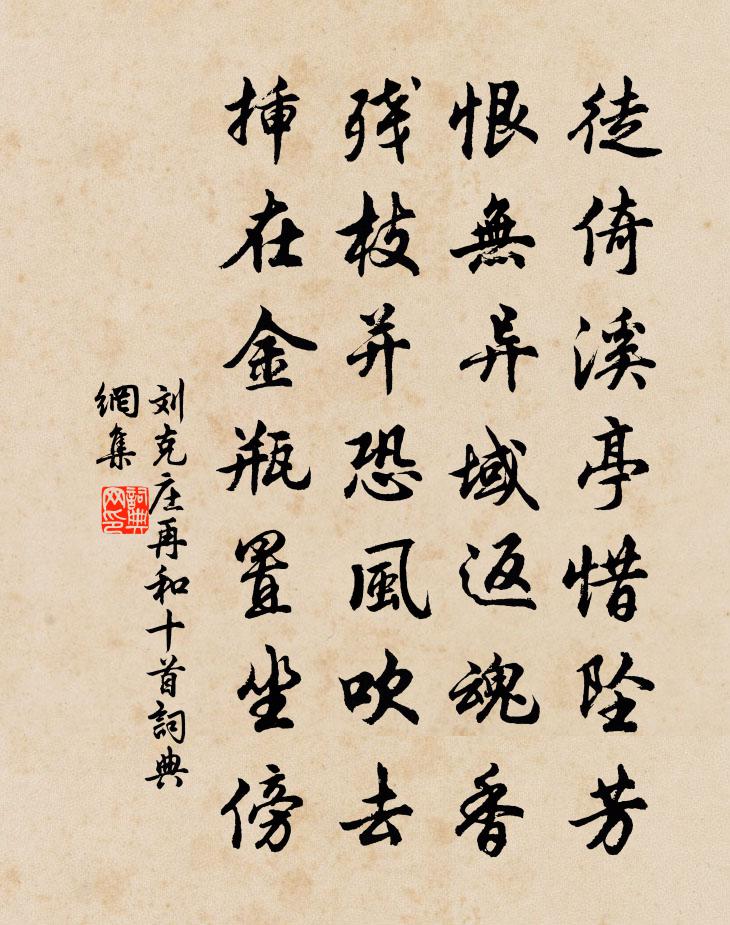 徒倚溪亭惜坠芳
恨無异域返魂香
残枝并恐風吹去
揷在金瓶置坐傍
刘克庄再和十首詞典
網集
詞典
网印